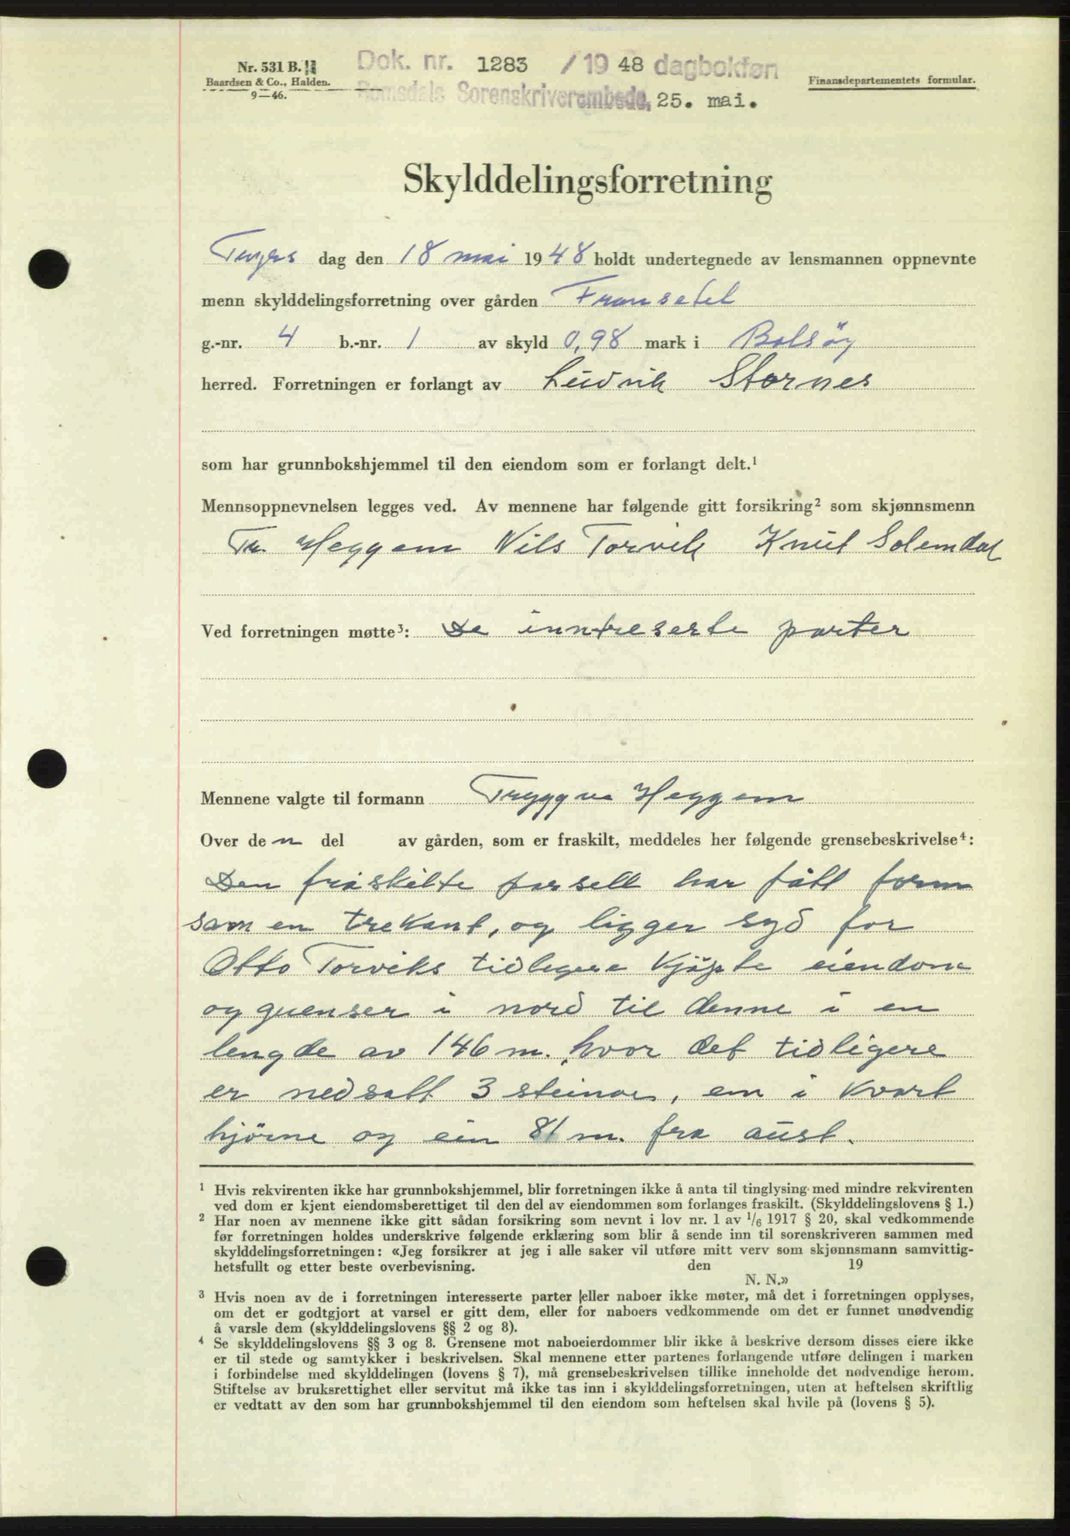 Nr. 531 B.
Baardsen & Co., Halden.
9—46.
Dok. nr. 1283 / 19 48 dagbokført
Romsdals Sorenskriverembede, 25. mai.
Finansdepartementets formular.
Skylddelingsforretning
dag den 18 mai 1948 holdt undertegnede av lensmannen oppnevnte
menn skylddelingsforretning over gården Fransetet
g.-nr. 4 b.-nr. 1 av skyld 0,98 mark i Bolsøy
herred. Forretningen er forlangt av Ludvik Stornes
som har grunnbokshjemmel til den eiendom som er forlangt delt.¹
Mennsoppnevnelsen legges ved. Av mennene har følgende gitt forsikring² som skjønnsmenn
Tr. Heggem Nils Torvik Knut Solemdal
Ved forretningen møtte³: De inntreserte parter
Mennene valgte til formann Tryggve Heggem
Over den del av gården, som er fraskilt, meddeles her følgende grensebeskrivelse⁴:
Den fraskilte parsell har fått form
som en trekant, og ligger syd for
Otto Torviks tidligere kjøpte eiendom
og grenser i nord til denne i en
lengde av 146 m. hvor det tidligere
er nedsatt 3 steinar, em i kvart
hjörne og ein 81 m. fra aust.
¹ Hvis rekvirenten ikke har grunnbokshjemmel, blir forretningen ikke å anta til tinglysing med mindre rekvirenten
ved dom er kjent eiendomsberettiget til den del av eiendommen som forlanges fraskilt. (Skylddelingslovens § 1.)
² Har noen av mennene ikke gitt sådan forsikring som nevnt i lov nr. 1 av 1/6 1917 § 20, skal vedkommende
før forretningen holdes underskrive følgende erklæring som blir å sende inn til sorenskriveren sammen med
skylddelingsforretningen: «Jeg forsikrer at jeg i alle saker vil utføre mitt verv som skjønnsmann samvittig-
hetsfullt og etter beste overbevisning. den 19
N. N.»
³ Hvis noen av de i forretningen interesserte parter eller naboer ikke møter, må det i forretningen opplyses,
om det er godtgjort at varsel er gitt dem, eller for naboers vedkommende om det er funnet unødvendig
å varsle dem (skylddelingslovens §§ 2 og 8).
⁴ Se skylddelingslovens §§ 3 og 8. Grensene mot naboeierdommer blir ikke å beskrive dersom disses eiere ikke
er til stede og samtykker i beskrivelsen. Skal mennene etter partenes forlangende utføre delingen i marken
i forbindelse med skylddelingen (lovens § 7), må grensebeskrivelsen tillike inneholde det nødvendige herom.
Stiftelse av bruksrettighet eller servitut må ikke tas inn i skylddelingsforretningen, uten at heftelsen skriftlig
er vedtatt av den som har grunnbokshjemmel til den eiendom som heftelsen skal hvile på (lovens § 5).